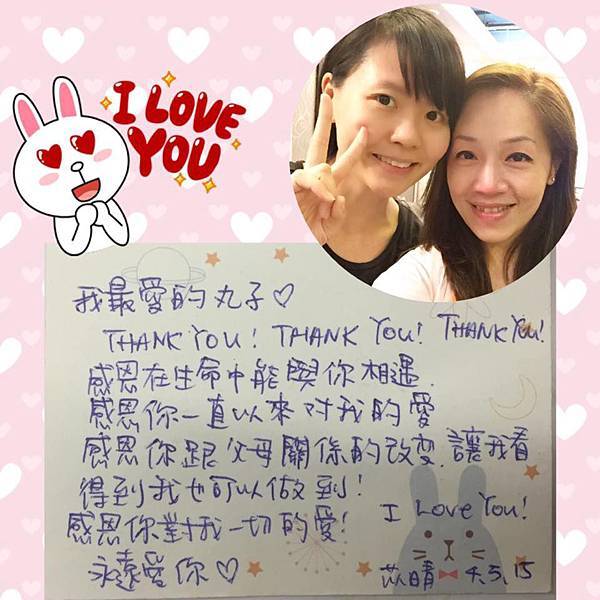 I LOVE
YOU
我最愛的丸子♡
THANK YOU! THANK YOU! THANK YOU!
感恩在生命中能與你相遇.
感恩你一直以來对我的愛
感恩你跟父母關係的改变.讓我看
得到我也可以做到!
感恩你對我一切的愛!
I Love You!
永遠愛你♡
苡晴 4.5.15